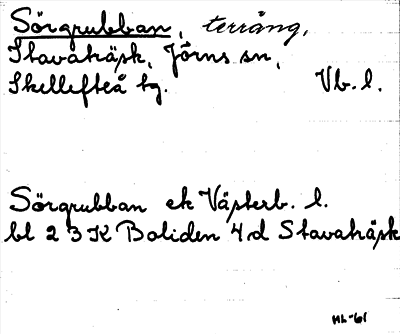 Sörgrubban, terräng,
Stavaträsk, Jörns sn,
Skellefteå tg. Vb. l.
Sörgrubban ek Västerb. l.
bl 23K Boliden 4d Stavaträsk
HL-61